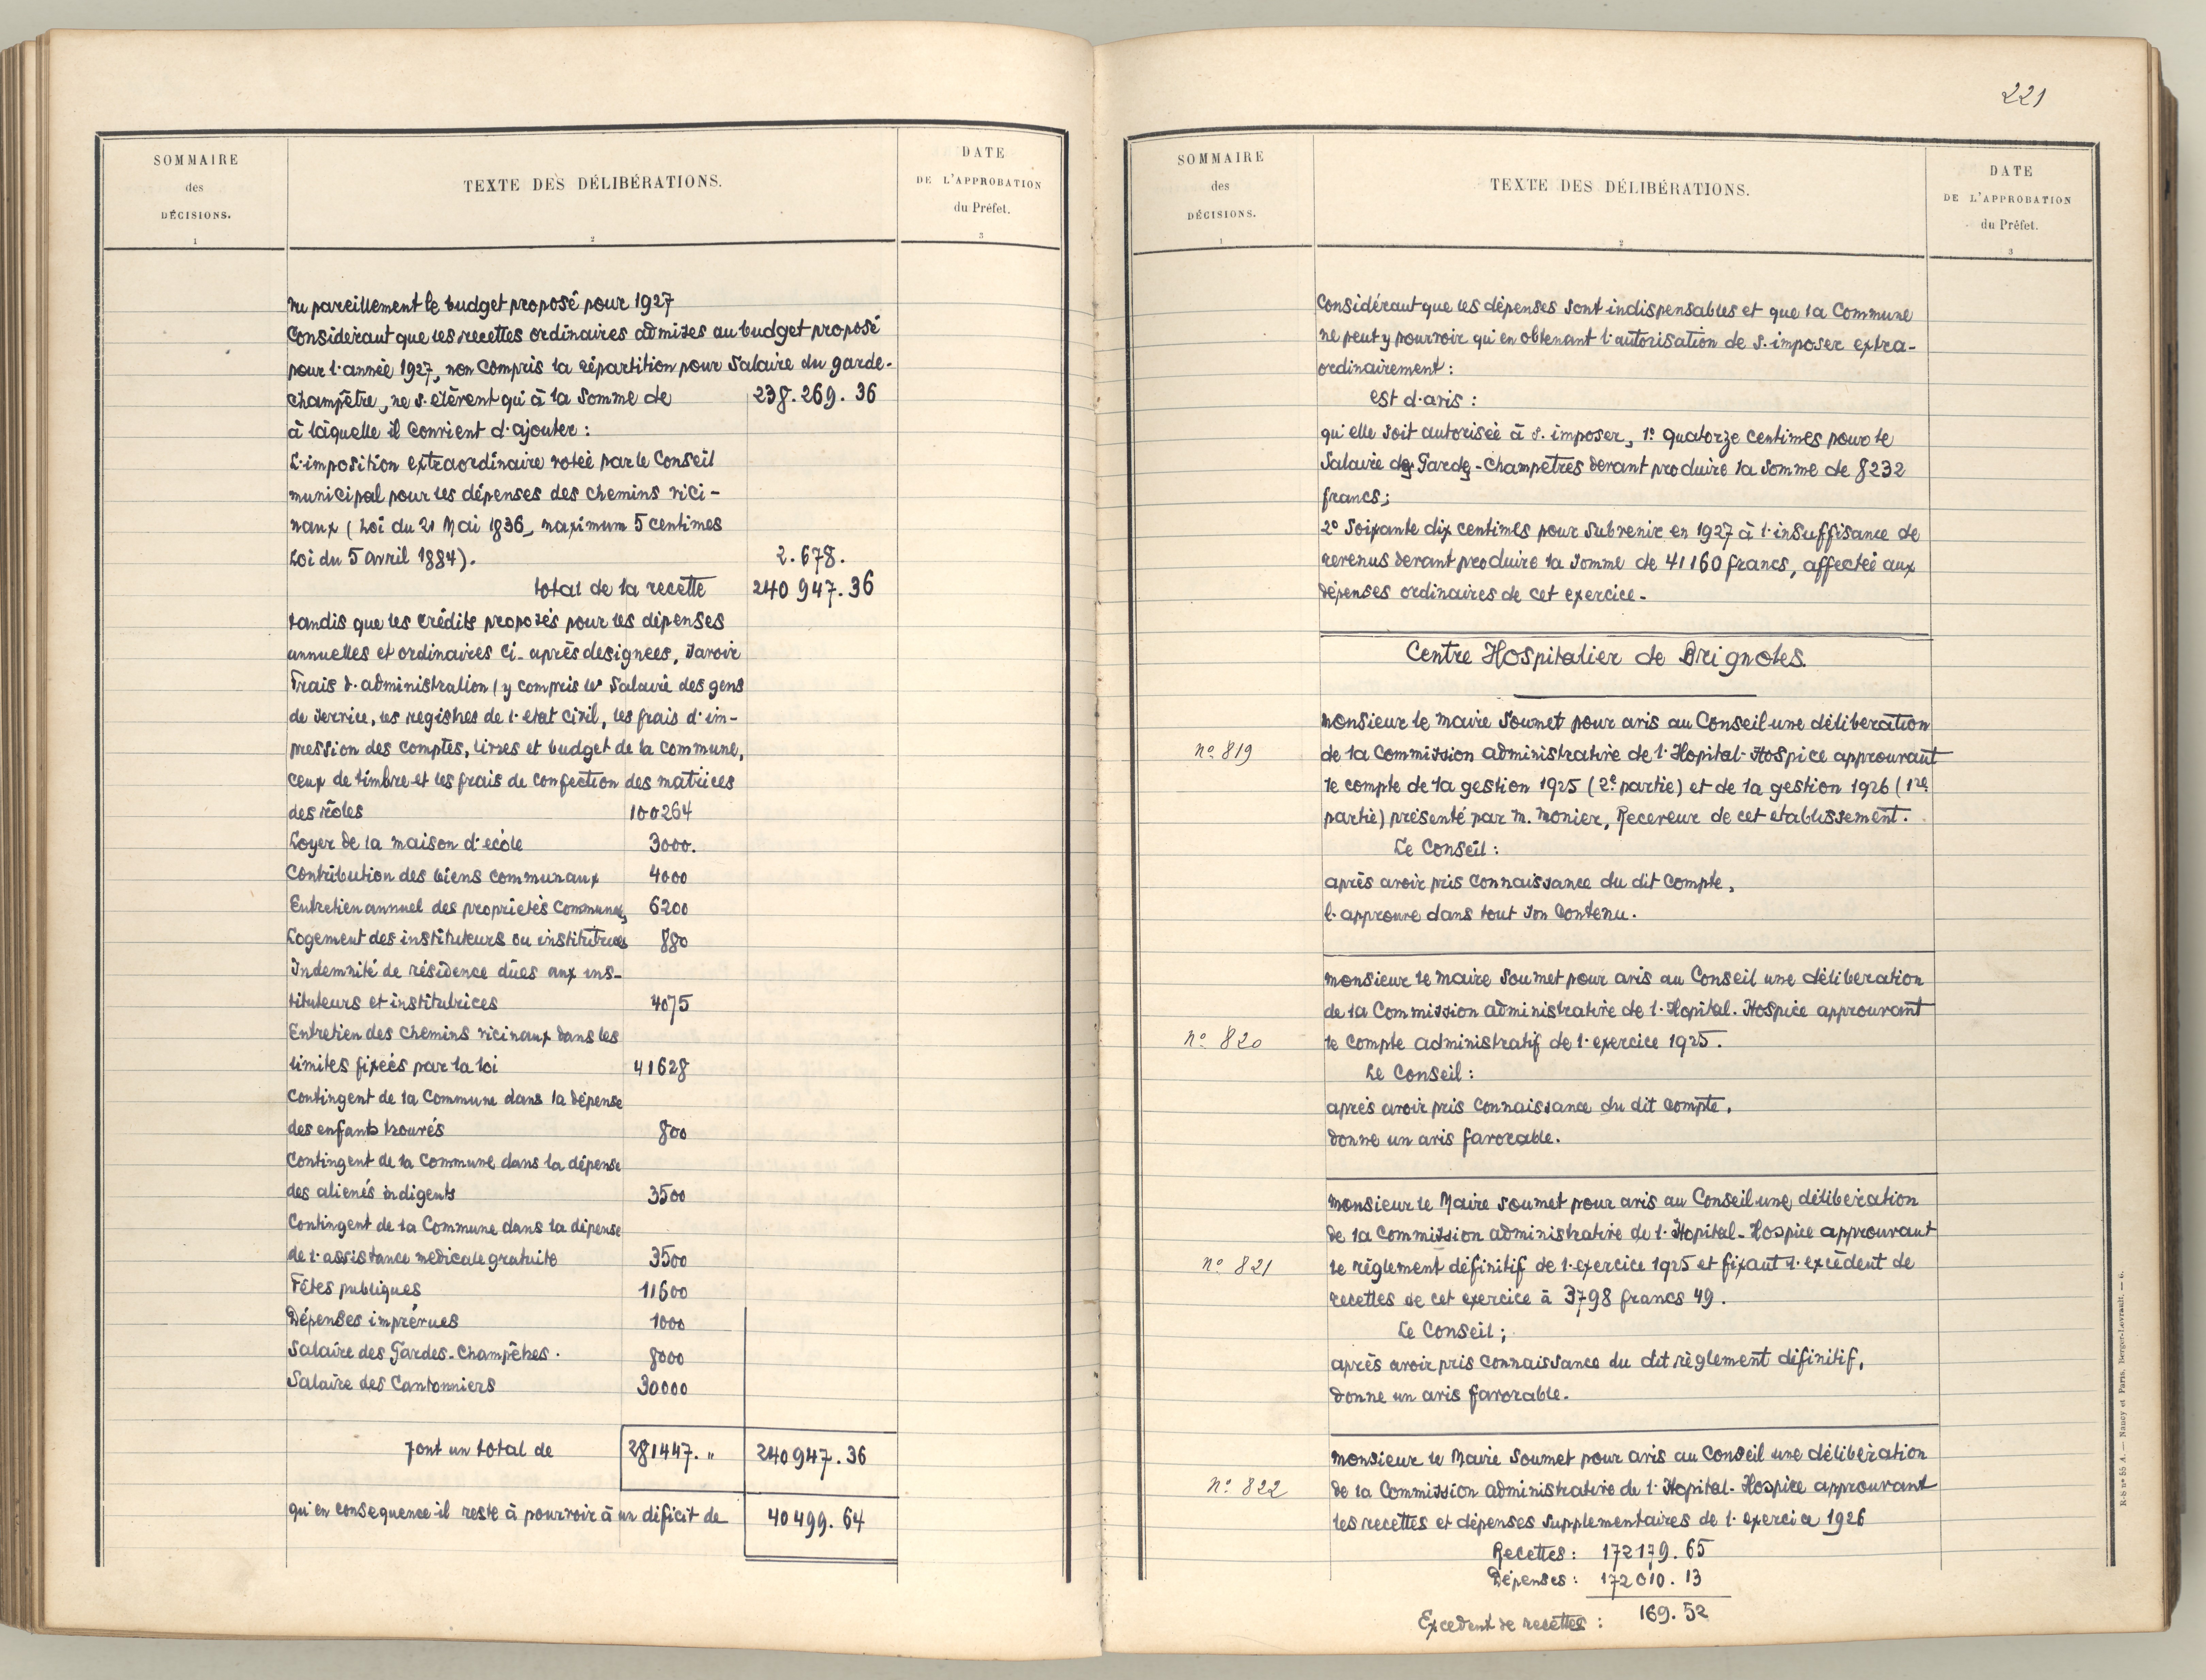 SOMMAIRE
des
DÉCISIONS.
1
TEXTE DES DÉLIBÉRATIONS.
2
DATE
DE L'APPROBATION
du Préfet.
3
Vu pareillement le budget proposé pour 1927
Considérant que les recettes ordinaires admises au budget proposé
pour l'année 1927, non compris la répartition pour Salaire du garde-
champêtre, ne s'élèvent qu'à la Somme de 238.269.36
à laquelle il convient d'ajouter :
L'imposition extraordinaire votée par le Conseil
municipal pour les dépenses des chemins vici-
naux (Loi du 21 Mai 1836, maximum 5 centimes
Loi du 5 avril 1884). 2.678.
total de la recette 240 947.36
tandis que les crédits proposés pour les dépenses
annuelles et ordinaires ci-après designees, savoir
Frais d'administration (y compris les Salaire des gens
de service, les registres de l'etat civil, les frais d'im-
pression des comptes, livres et budget de la commune,
ceux de timbre et les frais de confection des matrices
des rôles 100264
Loyer de la maison d'école 3000.
Contribution des biens communaux 4000
Entretien annuel des propriétés communes 6200
Logement des instituteurs ou institutrices 880
Indemnité de résidence dûes aux ins-
tituteurs et institutrices 4075
Entretien des chemins vicinaux dans les
limites fixées par la loi 41628
Contingent de la Commune dans la dépense
des enfants trouvés 800
Contingent de la Commune dans la dépense
des aliénés indigents 3500
Contingent de la Commune dans la dépense
de l'assistance medicale gratuite 3500
Fêtes publiques 11600
Dépenses imprévues 1000
Salaire des Gardes-Champêtres. 8000
Salaire des Cantonniers 30000
font un total de 281447. " 240947.36
qu'en consequence il reste à pourvoir à un déficit de 40499.64
221
SOMMAIRE
des
DÉCISIONS.
1
TEXTE DES DÉLIBÉRATIONS.
2
DATE
DE L'APPROBATION
du Préfet.
3
Considérant que les dépenses sont indispensables et que la Commune
ne peut y pourvoir qu'en obtenant l'autorisation de s'imposer extra-
ordinairement :
est d'avis :
qu'elle soit autorisée à s'imposer, 1° quatorze centimes pour le
Salaire des Gardes-Champêtres devant produire la somme de 8232
francs;
2° Soixante dix centimes pour Subvenir en 1927 à l'insuffisance de
revenus devant produire la somme de 41160 francs, affectée aux
dépenses ordinaires de cet exercice.
Centre Hospitalier de Brignoles.
Monsieur le Maire Soumet pour avis au Conseil une délibération
n° 819 de la Commission administrative de l'Hopital-Hospice approuvant
le compte de la gestion 1925 (2e partie) et de la gestion 1926 (1re
partie) présenté par M. Monier, Receveur de cet etablissement.
Le Conseil :
après avoir pris connaissance du dit Compte,
l'approuve dans tout son contenu.
Monsieur le Maire Soumet pour avis au Conseil une délibération
de la Commission administrative de l'Hopital-Hospice approuvant
n° 820 le compte administratif de l'exercice 1925.
Le Conseil :
après avoir pris connaissance du dit compte,
donne un avis favorable.
Monsieur le Maire Soumet pour avis au Conseil une délibération
de la Commission administrative de l'Hopital-Hospice approuvant
n° 821 le règlement définitif de l'exercice 1925 et fixant l'excédent de
recettes de cet exercice à 3798 francs 49.
Le Conseil ;
après avoir pris connaissance du dit règlement définitif,
donne un avis favorable.
Monsieur le Maire Soumet pour avis au Conseil une délibération
n° 822 de la Commission administrative de l'Hopital-Hospice approuvant
les recettes et dépenses supplementaires de l'exercice 1926
Recettes : 172179.65
Dépenses : 172010.13
Excedent de recettes : 169.52
R-S n° 55 A. — Nancy et Paris. Berger-Levrault. — 6.